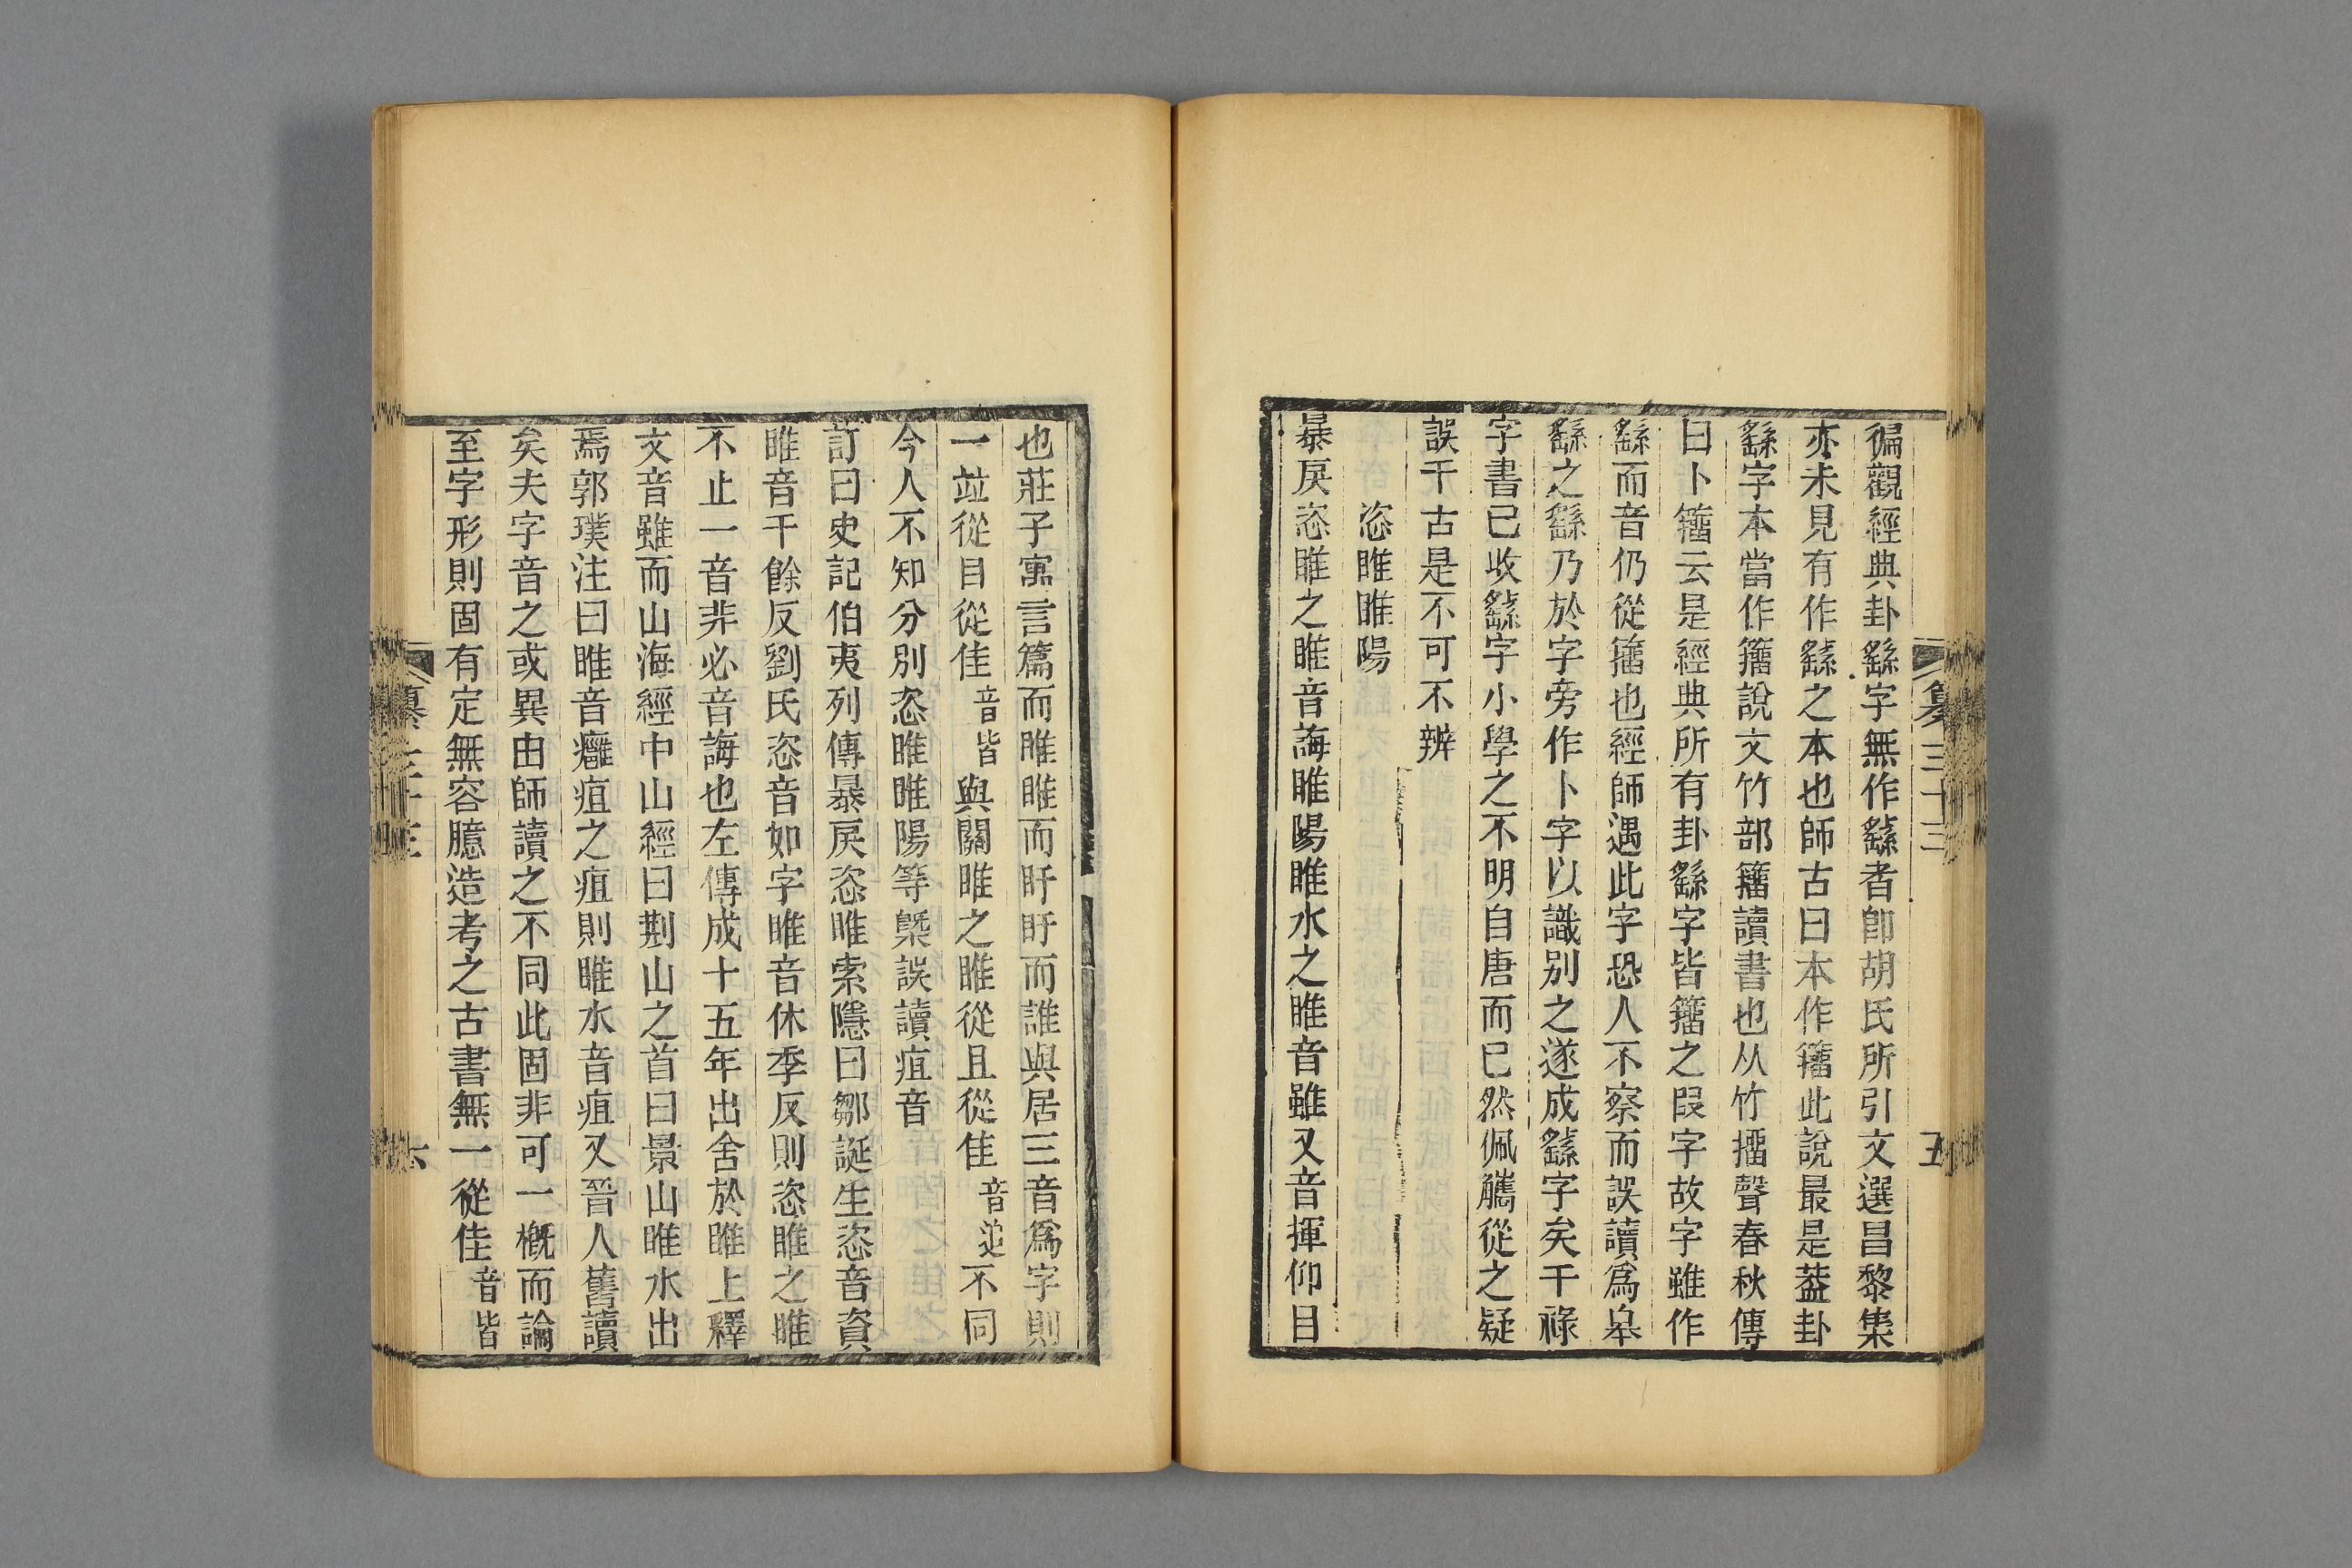 徧觀經典卦繇字無作䌛者卽胡氏所引文選昌黎集
亦未見有作䌛之本也師古曰本作籒此說最是葢卦
繇字本當作籒說文竹部籒讀書也从竹㩅聲春秋傳
曰卜籒云是經典所有卦繇字皆籒之叚字故字雖作
繇而音仍從籒也經師遇此字恐人不察而誤讀爲皋
繇之繇乃於字旁作卜字以識別之遂成䌛字矣干祿
字書已收䌛字小學之不明自唐而已然佩觿從之疑
誤千古是不可不辨
恣睢睢陽
暴戾恣睢之睢音誨睢陽睢水之睢音雖又音揮仰目
纂三十三
五
也莊子寓言篇而睢睢而盱盱而誰與居三音爲字則
一竝從目從隹音皆與關雎之雎從且從隹音迯不同
今人不知分別恣睢睢陽等槩誤讀疽音
訂曰史記伯夷列傳暴戾恣睢索隱曰鄒誕生恣音資
睢音千餘反劉氏恣音如字睢音休季反則恣睢之睢
不止一音非必音誨也左傳成十五年出舍於睢上釋
文音雖而山海經中山經曰荆山之首曰景山睢水出
焉郭璞注曰睢音癰疽之疽則睢水音疽又晉人舊讀
矣夫字音之或異由師讀之不同此固非可一槪而論
至字形則固有定無容臆造考之古書無一從佳音皆
纂三十三
六